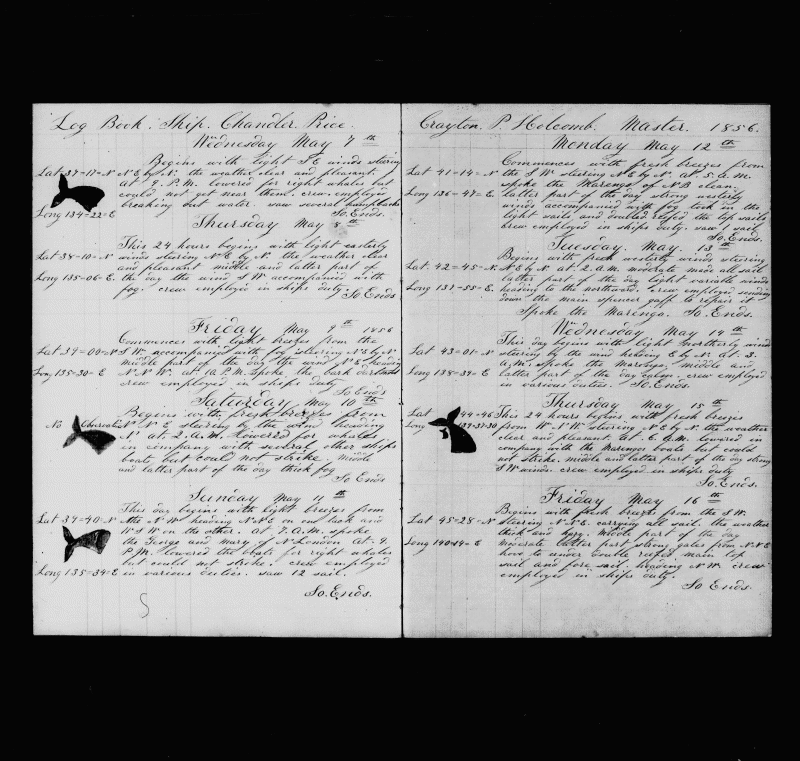 Log Book. Ship. Chandler Price.
Wednesday May 7th
Begins with light SE winds steering
Lat 37-17-N N E by N. the weather clear and pleasant.
at 4. P.M. lowered for right whales but
could not get near them. crew employed
breaking out water. saw several humpbacks
Long 134-22-E So. Ends.
Thursday May 8th
This 24 hours begins with light easterly
Lat 38-10-N winds steering N E by N. the weather clear
and pleasant middle and latter part of
Long 135-06-E the day the wind S W accompanied with
fog. crew employed in ships duty. So Ends
Friday May 9th 1856
Commences with light breezes from the
Lat 39-00-N S W. accompanied with fog steering N E by N.
middle part of the day the wind N E heading
Long 135-30-E N N W. at 10 P.M. spoke the bark
crew employed in ships duty
So Ends
Saturday May 10th
Begins with fresh breezes from
No Observation N N E steering by the wind heading
N at. 2. A.M. lowered for whales
in company with several other ships
boats but could not strike. middle
and latter part of the day thick fog
So Ends
Sunday May 11th
This day begins with light breezes from
Lat 39-40-N the N W heading N N E on one tack and
W S W on the other. at 7. A.M. spoke
the George and Mary of N London at. 4.
P.M. lowered the boats for right whales
but could not strike. crew employed
Long 135-34-E in various duties. saw 12 sail.
So. Ends.
5
Crayton. P. Holcomb. Master. 1856.
Monday May 12th
Commences with fresh breezes from
Lat 41-14-N the S W steering N E by N. at. 5. a.m.
spoke the Marengo of N B clean.
Long 136-47-E. latter part of the day strong westerly
winds accompanied with fog took in the
light sails and doubled reefed the top sails
crew employed in ships duty. saw 1 sail
So. Ends.
Tuesday. May. 13th
Begins with fresh westerly winds steering
Lat. 42-45-N. N E by N at. 2. a.m. moderate made all sail
latter part of the day light variable winds
Long 137-55-E. heading to the northward. crew employed sending
down the main spencer gaff to repair it
Spoke the Marengo. So. Ends.
Wednesday May 14th
This day begins with light northerly wind
Lat 43-01-N steering by the wind heading E by N. at. 3.
a.m. spoke the Marengo. middle and
Long 138-34-E latter part of the day calm. crew employed
in various duties. So. Ends.
Thursday May 15th
Lat 44-46 This 24 hours begins with fresh breezes
Long 139-37-30 from W N W steering N E by N. the weather
clear and pleasant. at. 6. a.m. lowered in
company with the Marengos boats but could
not strike. middle and latter part of the day strong
S W winds. crew employed in ships duty
So. Ends.
Friday May 16th
Begins with fresh breezes from the S W.
Lat 45-28-N steering N N E. carrying all sail. the weather
thick and hazy. middle part of the day
Long E moderate latter part strong gales from N N E
hove to under double reefed main top
sail and fore sail. heading N W. crew
employed in ships duty.
So Ends